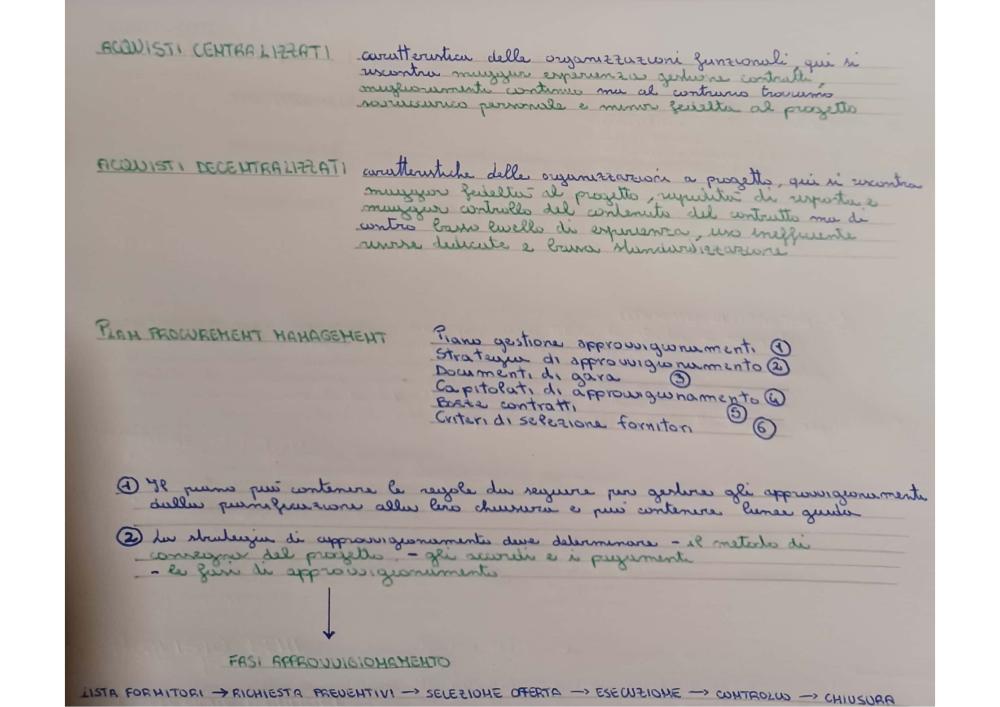 ACQUISTI CENTRALIZZATI caratteristica delle organizzazioni funzionali, qui si
riscontra maggior esperienza gestione contratti,
miglioramenti continui ma al contrario troviamo
sovraccarico personale e minor fedeltà al progetto
ACQUISTI DECENTRALIZZATI caratteristiche delle organizzazioni a progetto, qui si riscontra
maggior fedeltà al progetto, rapidità di risposta e
maggior controllo del contenuto del contratto ma di
contro basso livello di esperienza, uso inefficiente
risorse dedicate e bassa standardizzazione
PLAN PROCUREMENT MANAGEMENT Piano gestione approvvigionamenti ①
Strategia di approvvigionamento ②
Documenti di gara ③
Capitolati di approvvigionamento ④
Bozze contratti ⑤
Criteri di selezione fornitori ⑥
① Il piano può contenere le regole da seguire per gestire gli approvvigionamenti
dalla pianificazione alla loro chiusura e può contenere linee guida
② La strategia di approvvigionamento deve determinare - il metodo di
consegna del progetto - gli accordi e i pagamenti
- le fasi di approvvigionamento
↓
FASI APPROVVIGIONAMENTO
LISTA FORNITORI → RICHIESTA PREVENTIVI → SELEZIONE OFFERTA → ESECUZIONE → CONTROLLO → CHIUSURA